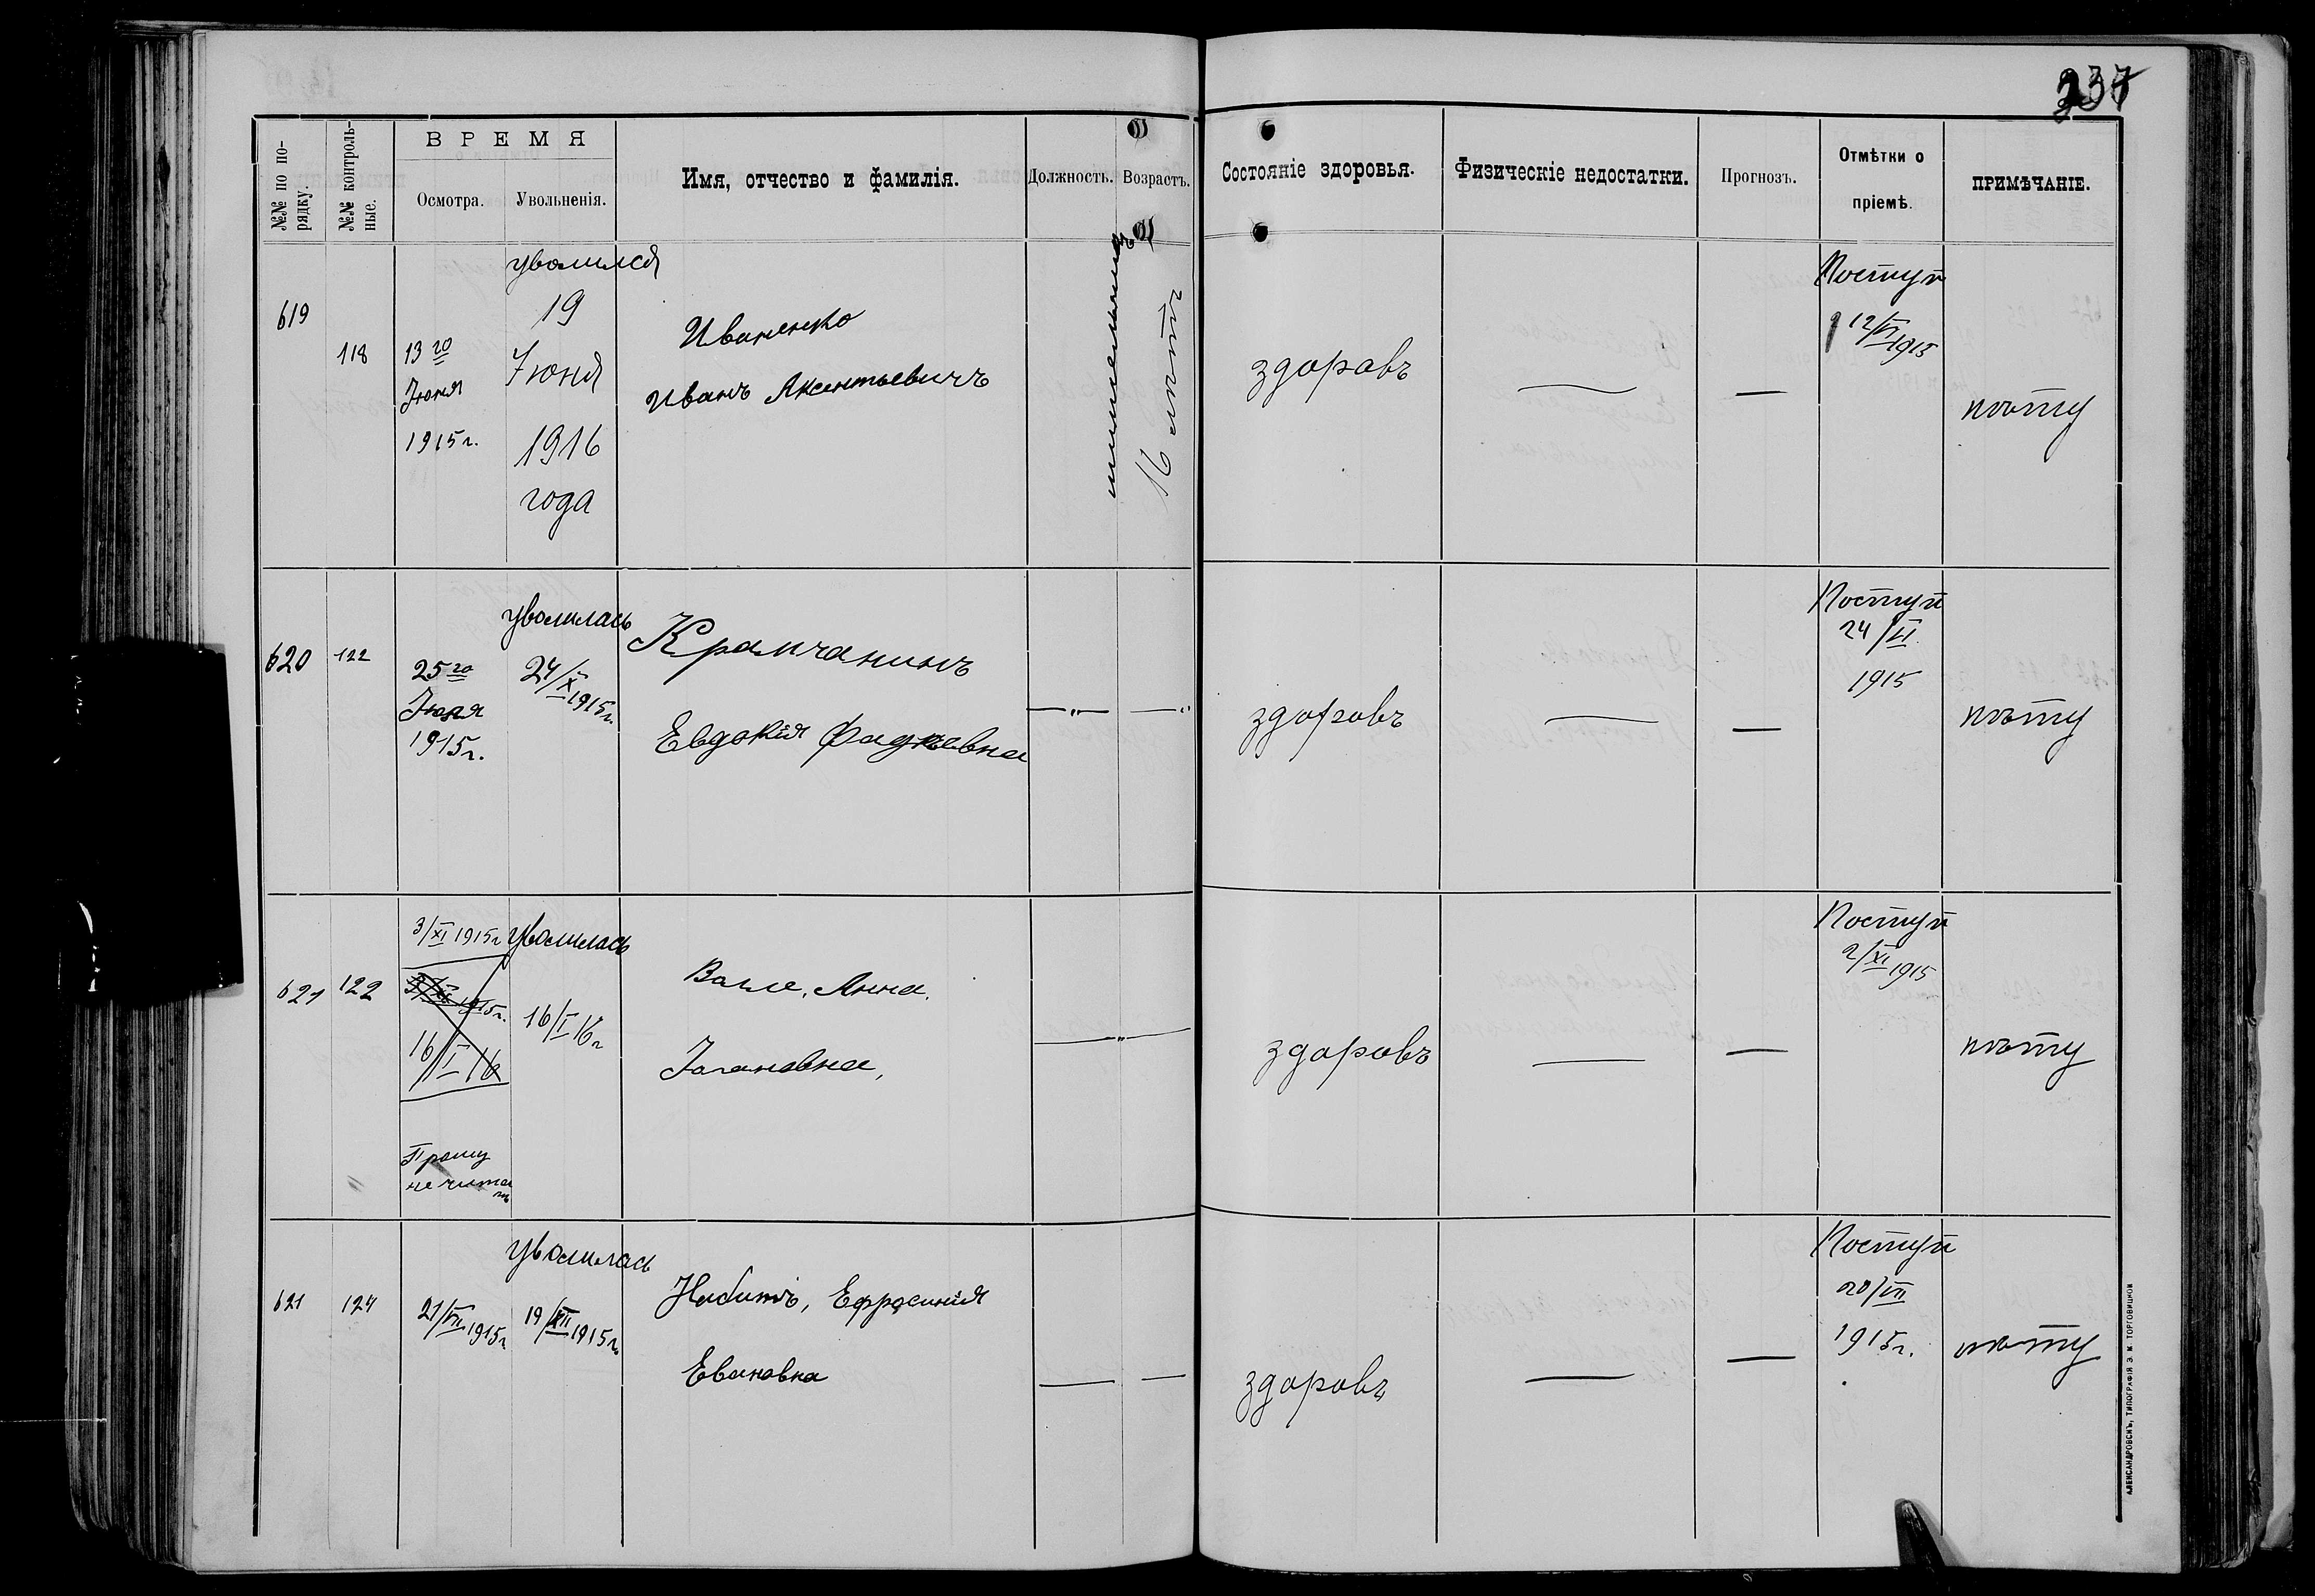 237
№№ по по-
рядку.
№№ контроль-
ные.
ВРЕМЯ
Осмотра.
Увольненія.
Имя, отчество и фамилія.
Должность.
Возрастъ.
Состояніе здоровья.
Физическіе недостатки.
Прогнозъ.
Отмѣтки о
пріемѣ.
ПРИМѢЧАНІЕ.
619
118
13го
Іюня
1915г.
уволился
19
Іюня
1916
года
Иваненко
Иванъ Аксентьевичъ
16 лѣтъ
здоровъ
—
—
Поступ
12/VI 1915
нѣту
620
122
25го
Іюня
1915г.
уволилась
24/X 1915г.
Крамчанинъ
Евдокія Фадѣевна
—„—
—„
здоровъ
—
—
Поступ
24/VI
1915
нѣту
621
122
3/XI 1915г
3/XI 1915г.
16/I 16
Прошу
не читать
уволилась
16/I 16г
Валле, Анна.
Іогановна,
—„—
здоровъ
—
—
Поступ
2/XI 1915
нѣту
621
124
21/VII 1915г
уволилась
19/XII 1915г.
Ефросинія
Евановка
—
—
здоровъ
—
—
Поступ
20/VII
1915г.
нѣту
АЛЕКСАНДРОВСКЪ, ТИПОГРАФІЯ З. М. ТОРГОВИЦКОЙ